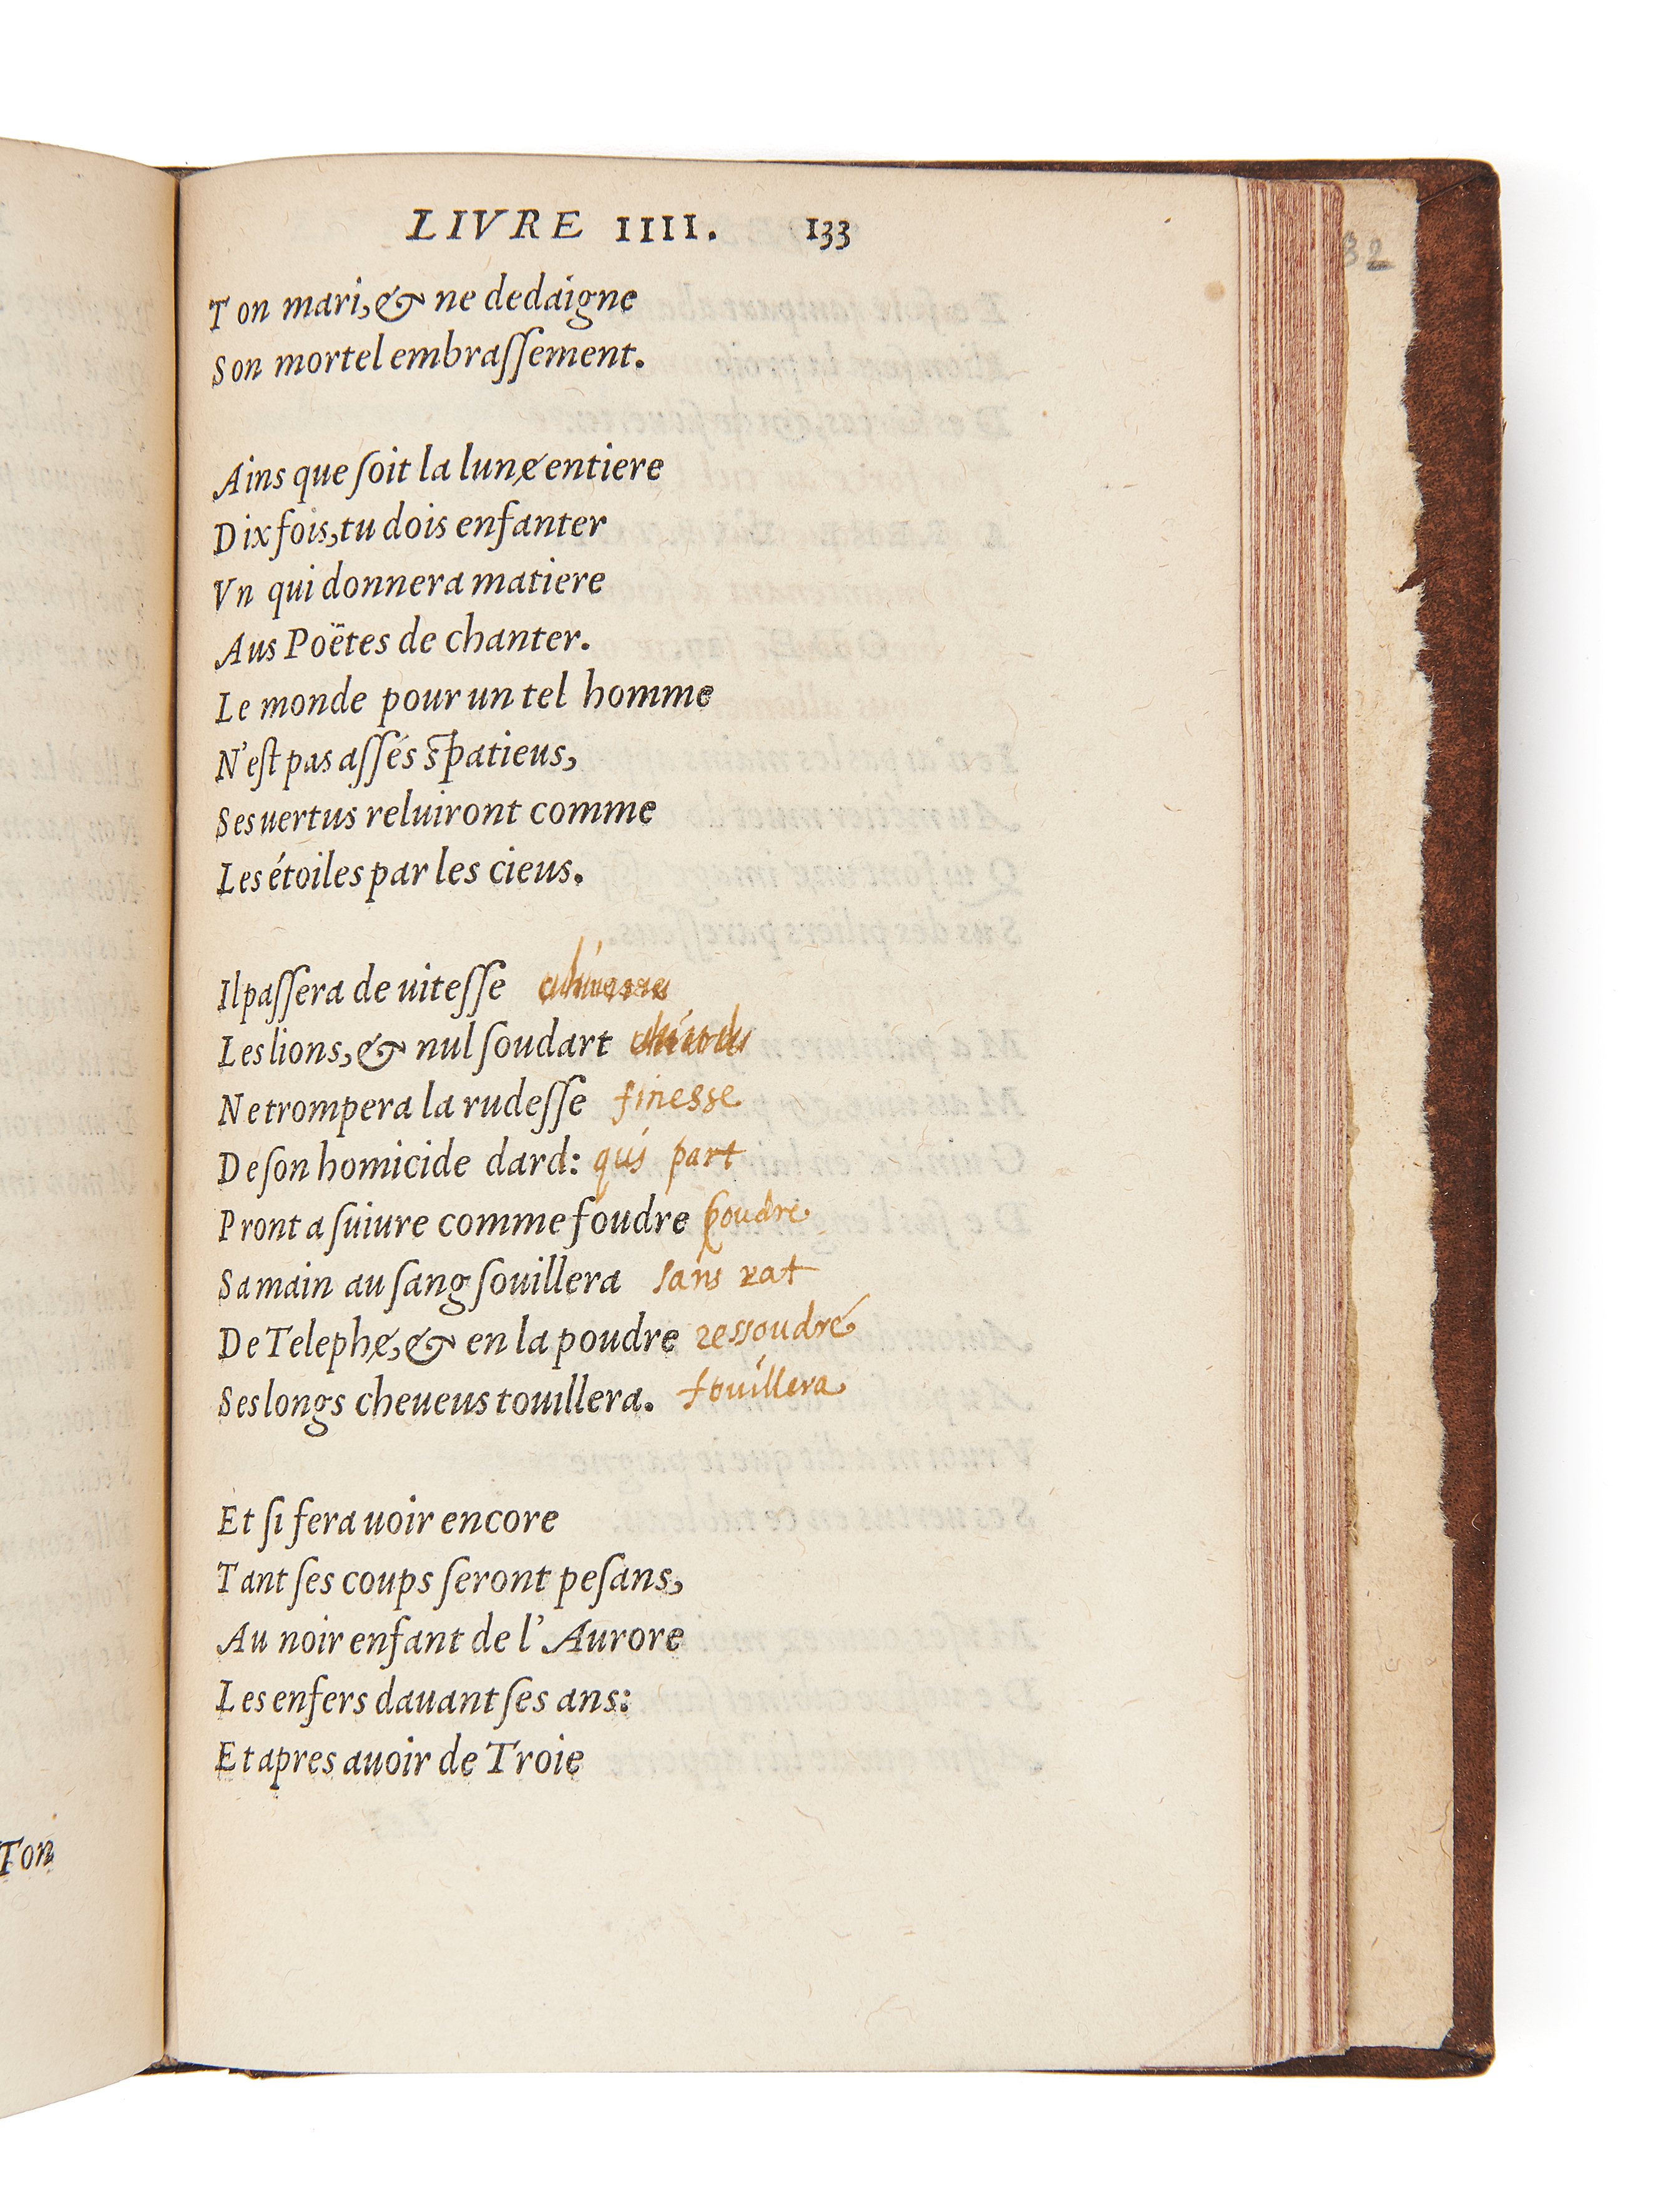 LIVRE IIII. 133
Ton mari, & ne dedaigne
Son mortel embraſſement.
Ains que ſoit la lune entiere
Dix fois, tu dois enfanter
Vn qui donnera matiere
Aus Poëtes de chanter.
Le monde pour un tel homme
N'eſt pas aſſés spatieus,
Ses uertus reluiront comme
Les étoiles par les cieus.
Il paſſera de uiteſſe
Les lions, & nul ſoudart
Ne trompera la rudeſſe finesse
De ſon homicide dard: qui part
Pront a ſuiure comme foudre poudre
Sa main au ſang ſouillera sans rat
De Telephe, & en la poudre ressoudre
Ses longs cheueus touillera. fouillera
Et ſi fera uoir encore
Tant ſes coups ſeront peſans,
Au noir enfant de l'Aurore
Les enfers dauant ſes ans:
Et apres auoir de Troie
Ton
32